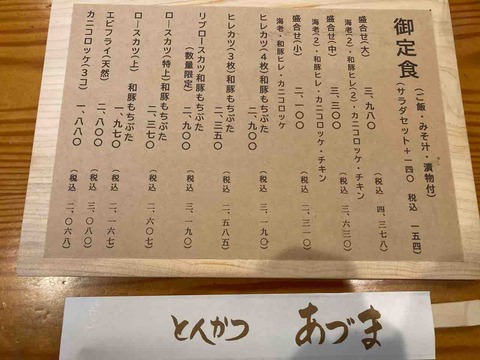 御定食
(ご飯・みそ汁・漬物付)
(サラダセット+一四〇 税込 一五四)
盛合せ(大) 三、九八〇 (税込 四、三七八)
海老(2)・和豚ヒレ(2)・カニコロッケ・チキン
盛合せ(中) 三、三〇〇 (税込 三、六三〇)
海老(2)・和豚ヒレ・カニコロッケ・チキン
盛合せ(小) 二、一〇〇 (税込 二、三一〇)
海老・和豚ヒレ・カニコロッケ
ヒレカツ(4枚)和豚もちぶた 二、九〇〇 (税込 三、一九〇)
ヒレカツ(3枚)和豚もちぶた 二、三五〇 (税込 二、五八五)
リブロースカツ和豚もちぶた 二、九〇〇 (税込 三、一九〇)
(数量限定)
ロースカツ(特上)和豚もちぶた 二、三七〇 (税込 二、六〇七)
ロースカツ(上) 和豚もちぶた 一、九七〇 (税込 二、一六七)
エビフライ(天然) 二、八〇〇 (税込 三、〇八〇)
カニコロッケ(3コ) 一、八八〇 (税込 二、〇六八)
とんかつ あづま